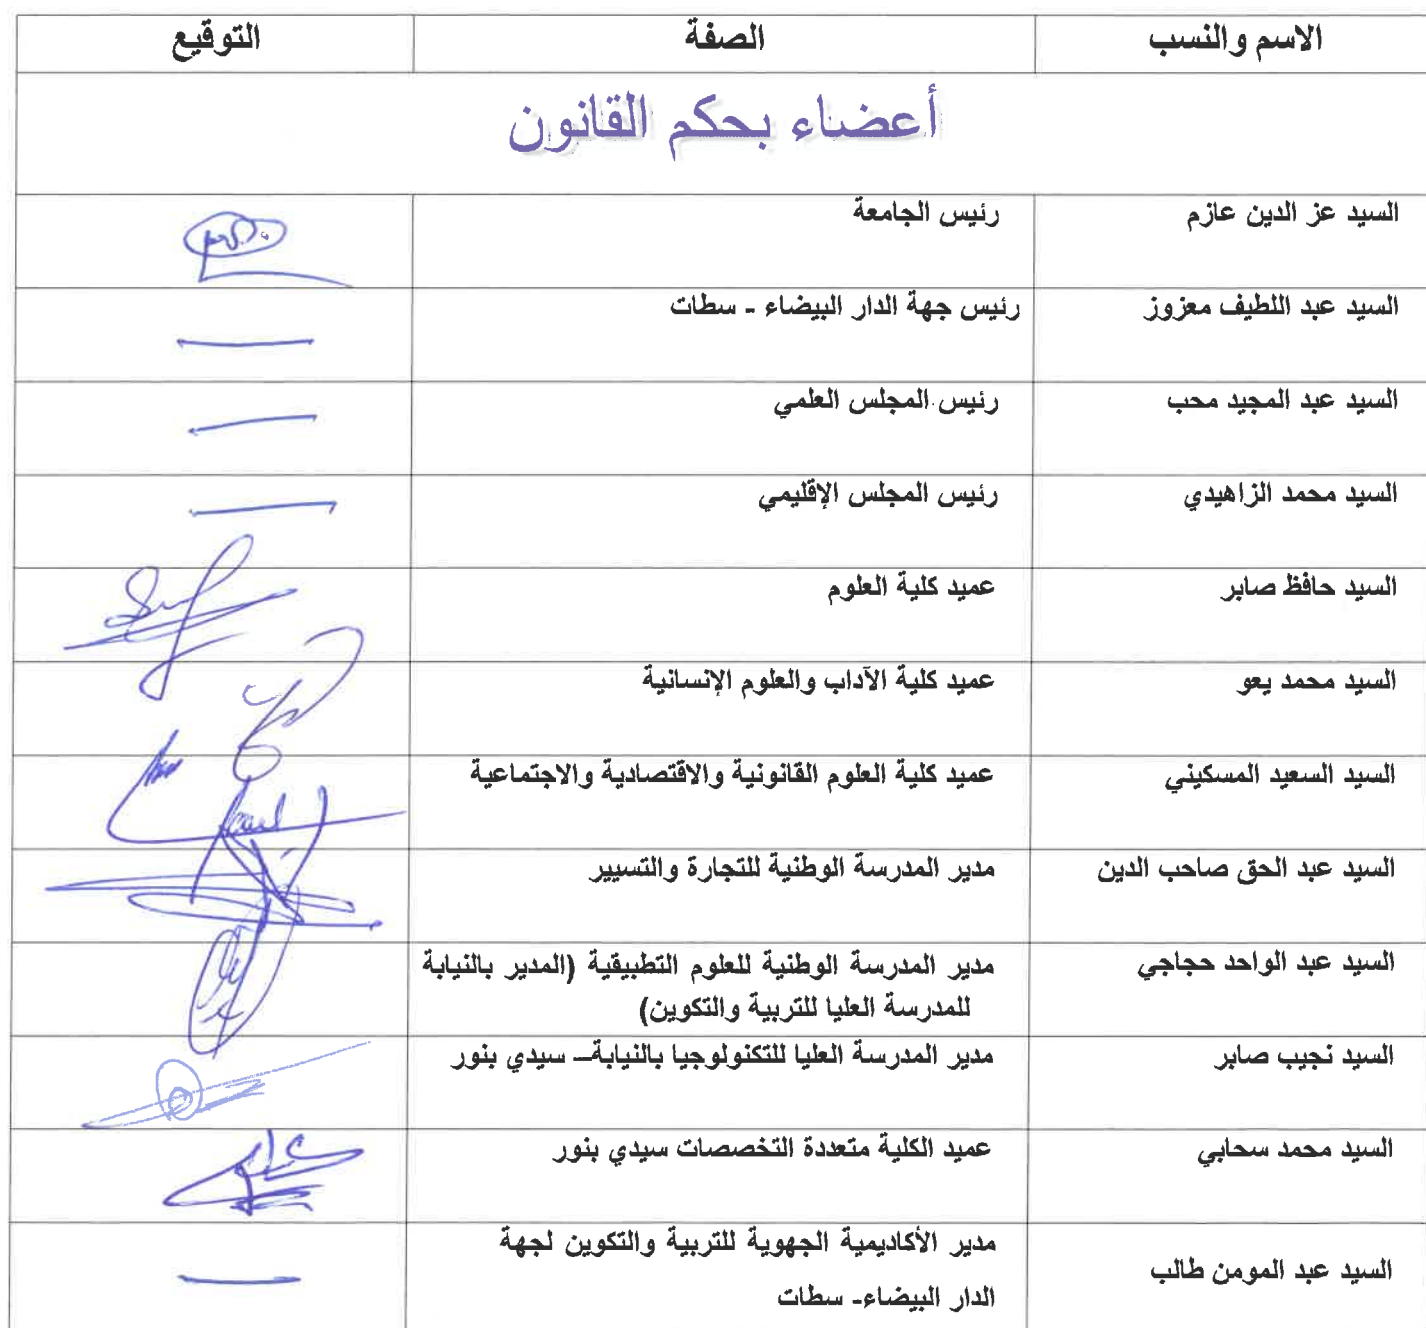 الاسم والنسب الصفة التوقيع
أعضاء بحكم القانون
السيد عز الدين عازم رئيس الجامعة
السيد عبد اللطيف معزوز رئيس جهة الدار البيضاء - سطات
السيد عبد المجيد محب رئيس المجلس العلمي
السيد محمد الزاهيدي رئيس المجلس الإقليمي
السيد حافظ صابر عميد كلية العلوم
السيد محمد يعو عميد كلية الآداب والعلوم الإنسانية
السيد السعيد المسكيني عميد كلية العلوم القانونية والاقتصادية والاجتماعية
السيد عبد الحق صاحب الدين مدير المدرسة الوطنية للتجارة والتسيير
السيد عبد الواحد حجاجي مدير المدرسة الوطنية للعلوم التطبيقية (المدير بالنيابة
للمدرسة العليا للتربية والتكوين)
السيد نجيب صابر مدير المدرسة العليا للتكنولوجيا بالنيابة– سيدي بنور
السيد محمد سحابي عميد الكلية متعددة التخصصات سيدي بنور
السيد عبد المومن طالب مدير الأكاديمية الجهوية للتربية والتكوين لجهة
الدار البيضاء- سطات